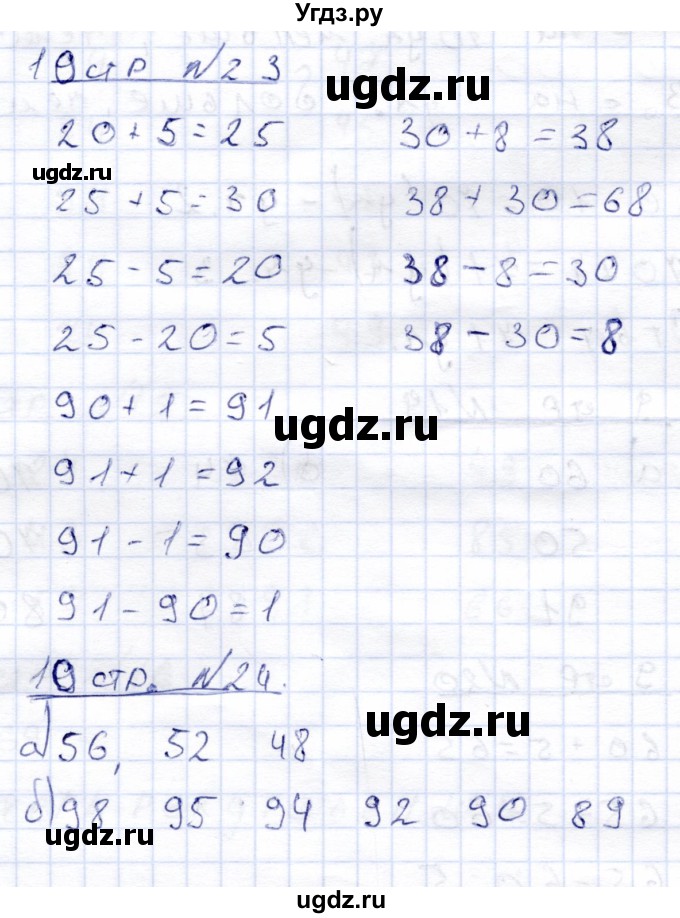 Угдз.ру
10 стр N23
ugdz.ru
20 + 5 = 25 30 + 8 = 38
ugdz.ru
25 + 5 = 30 38 + 30 = 68
25 - 5 = 20 38 - 8 = 30
25 - 20 = 5 38 - 30 = 8
90 + 1 = 91
ugdz.ru
91 + 1 = 92
91 - 1 = 90
91 - 90 = 1
10 стр. N24.
ugdz.ru
а) 56, 52 48
б) 98 95 94 92 90 89
ugdz.ru
ugdz.ru
ugdz.ru